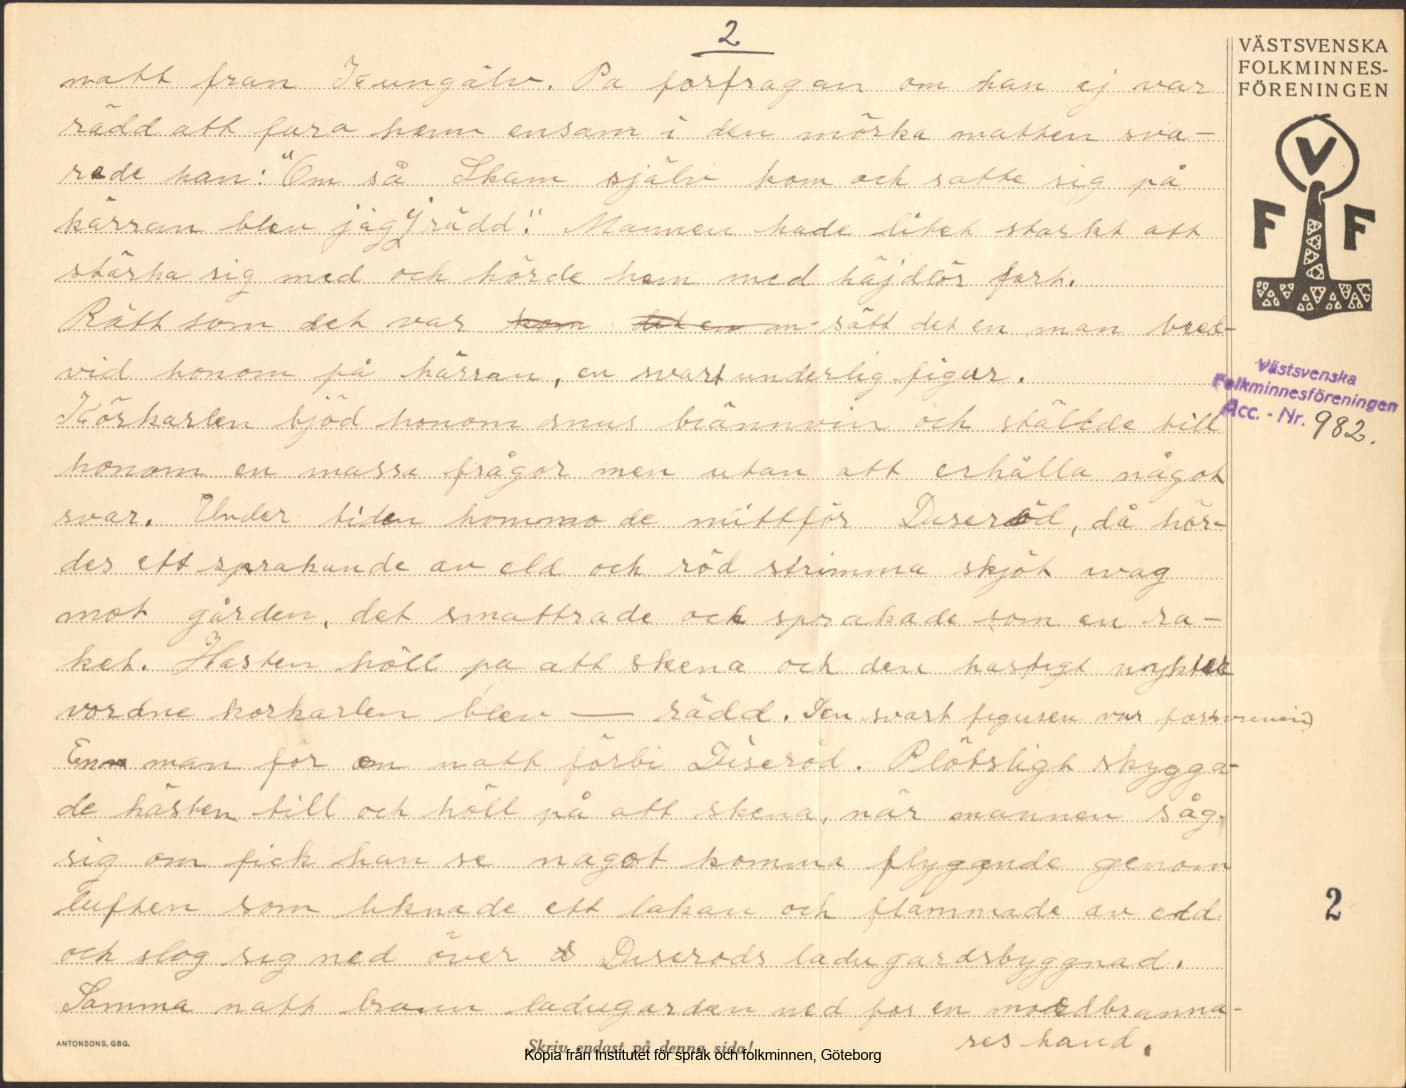 2
VÄSTSVENSKA
FOLKMINNES-
FÖRENINGEN
V
F F
natt fran Kungälv. Pa forfragan om han ej var
rädd att fara hem ensam i den mörka natten sva-
rade han: "Om så Skam själv kom och satte sig på
kärran blev jag ej rädd." Mannen hade litet starkt att
stärka sig med och körde hem med häjdlör fart.
Rätt som det var kom satt det en man bred-
vid honom på kärran, en svart underlig figur.
Körkarlen bjöd honom snus brännvin och ställde till
honom en massa frågor men utan att erhålla något
svar. Under tiden kommo de mittför Duseröd, då hör-
des ett sprakande av eld och röd strimma skjöt ivag
mot gården, det smattrade och sprakade som en ra-
ket. Hasten höll pa att skena och den hastigt nykter
vordne korkarlen blev — rädd. Den svart figuren var forsvunnen
En man för en natt förbi Diseröd. Plötsligt skygga-
de hästen till och höll på att skena, när mannen såg
sig om fick han se nagot komma flygande genom
luften som liknade ett lakan och flammade av eld
och slog sig ned över Duserods ladugardsbyggnad.
Samma natt brann ladugarden ned for en mordbranna-
res hand.
Västsvenska
Folkminnesföreningen
Acc. - Nr. 982.
2
ANTONSONS, GBG.
Skriv endast på denna sida!
Kopia från Institutet för språk och folkminnen, Göteborg